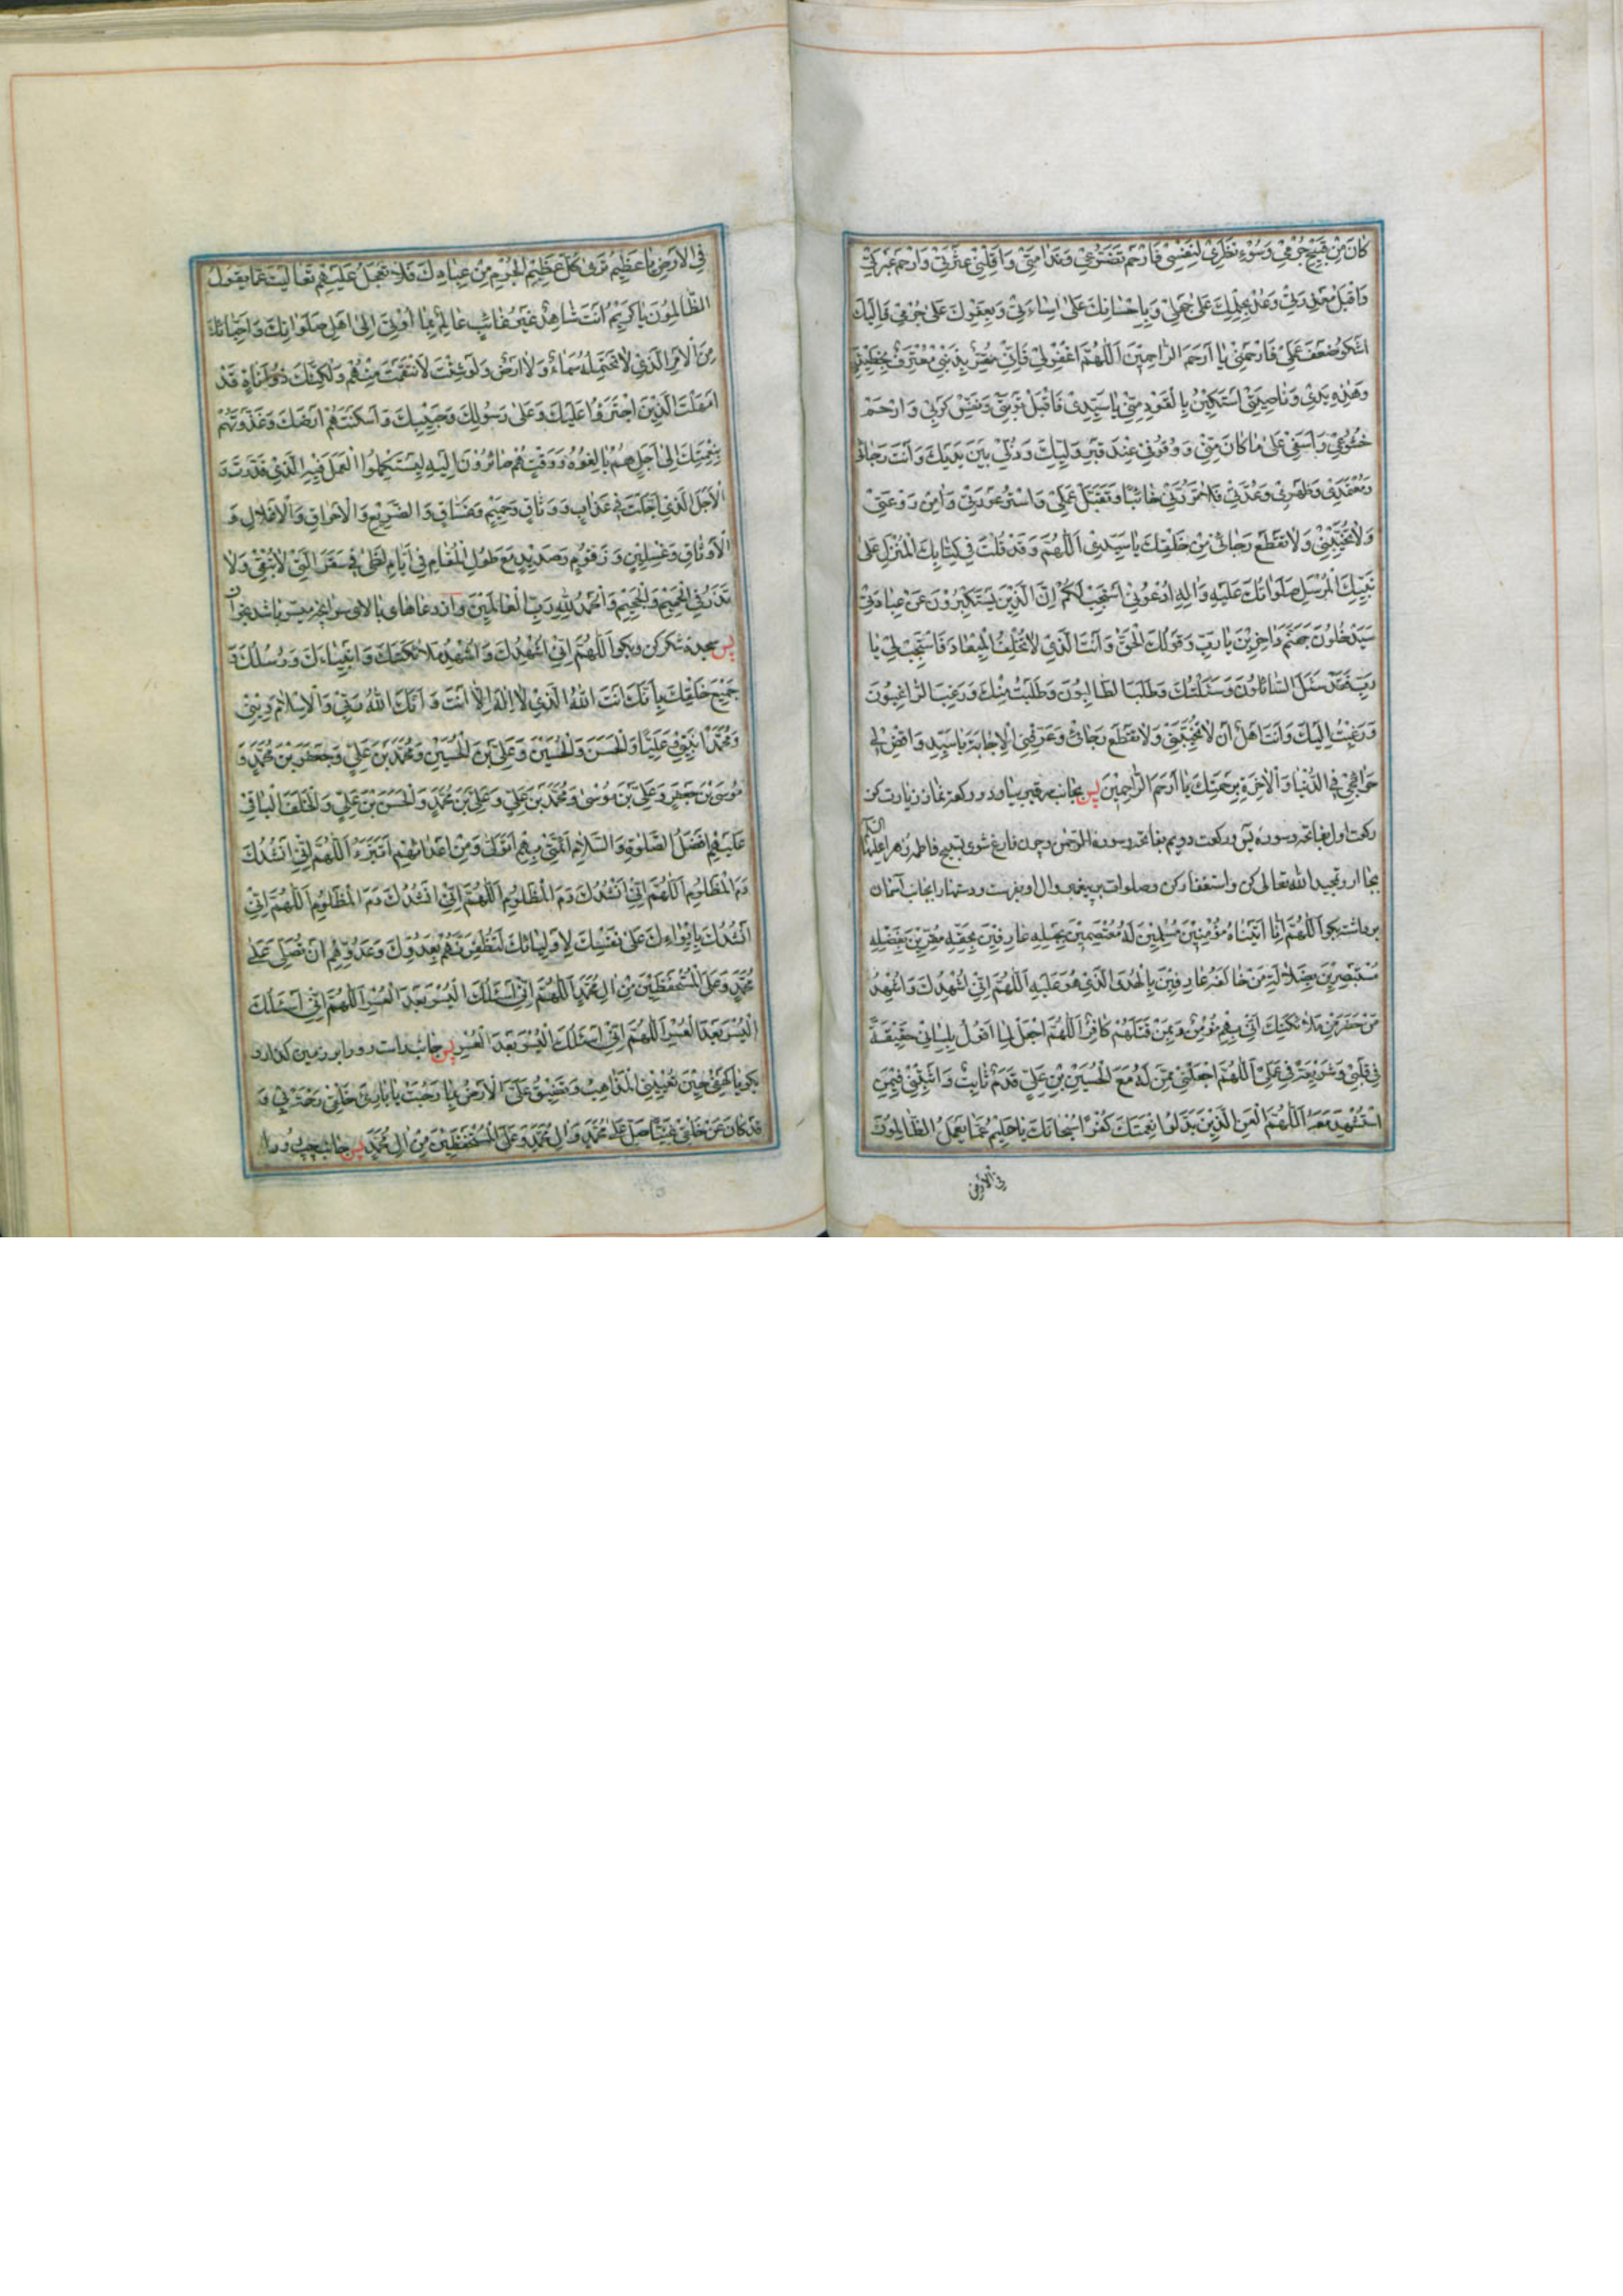 كَانَ مِنْ قَبِيحِ جُرْمِي وَسُوءِ نَظَرِي لِنَفْسِي فَارْحَمْ تَضَرُّعِي وَنَدَامَتِي وَأَقِلْنِي عَثْرَتِي وَارْحَمْ عَبْرَتِي
وَاقْبَلْ مَعْذِرَتِي وَعُدْ بِحِلْمِكَ عَلَى جَهْلِي وَبِإِحْسَانِكَ عَلَى إِسَاءَتِي وَبِعَفْوِكَ عَلَى جُرْمِي فَإِلَيْكَ
أَشْكُو ضَعْفَ عَمَلِي فَارْحَمْنِي يَا أَرْحَمَ الرَّاحِمِينَ اَللّٰهُمَّ اغْفِرْ لِي فَإِنِّي مُقِرٌّ بِذَنْبِي مُعْتَرِفٌ بِخَطِيئَتِي
وَهٰذِهِ يَدِي وَنَاصِيَتِي أَسْتَكِينُ بِالْقَوَدِ مِنِّي يَا سَيِّدِي فَاقْبَلْ تَوْبَتِي وَنَفِّسْ كَرْبِي وَارْحَمْ
خُشُوعِي وَأَسَفِي عَلَى مَا كَانَ مِنِّي وَوُقُوفِي عِنْدَ قَبْرِ وَلِيِّكَ وَذُلِّي بَيْنَ يَدَيْكَ وَأَنْتَ رَجَائِي
وَمُعْتَمَدِي وَظَهْرِي وَعُدَّتِي فَلَا تَرُدَّنِي خَائِبًا وَتَقَبَّلْ عَمَلِي وَاسْتُرْ عَوْرَتِي وَآمِنْ رَوْعَتِي
وَلَا تُخَيِّبْنِي وَلَا تَقْطَعْ رَجَائِي مِنْ خَلْقِكَ يَا سَيِّدِي اَللّٰهُمَّ وَقَدْ قُلْتَ فِي كِتَابِكَ الْمُنْزَلِ عَلَى
نَبِيِّكَ الْمُرْسَلِ صَلَوَاتُكَ عَلَيْهِ وَآلِهِ ادْعُونِي أَسْتَجِبْ لَكُمْ إِنَّ الَّذِينَ يَسْتَكْبِرُونَ عَنْ عِبَادَتِي
سَيَدْخُلُونَ جَهَنَّمَ دَاخِرِينَ يَا رَبِّ وَقَوْلُكَ الْحَقُّ وَأَنْتَ الَّذِي لَا تُخْلِفُ الْمِيعَادَ فَاسْتَجِبْ لِي يَا
رَبِّ فَقَدْ سَئَلَ السَّائِلُونَ وَسَئَلْتُكَ وَطَلَبَ الطَّالِبُونَ وَطَلَبْتُ مِنْكَ وَرَغِبَ الرَّاغِبُونَ
وَرَغِبْتُ إِلَيْكَ وَأَنْتَ أَهْلٌ أَنْ لَا تُخَيِّبَنِي وَلَا تَقْطَعْ رَجَائِي وَعَرِّفْنِي الْإِجَابَةَ يَا سَيِّدِي وَاقْضِ لِي
حَوَائِجِي فِي الدُّنْيَا وَالْآخِرَةِ بِرَحْمَتِكَ يَا أَرْحَمَ الرَّاحِمِينَ پس بجانب سر قبر بیا و دو رکعة نماز زیارت کن
رکعت اول بفاتحه و سوره یس و رکعت دویم بفاتحه و سوره الرحمن و چون فارغ شوی تسبیح فاطمه زهرا علیها السلام
بجا آر و تمجید الله تعالی کن و استغفار کن و صلوات بر پیغمبر و ال او بفرست و دستها را بجانب آسمان
بردار و بگو اَللّٰهُمَّ إِنَّا أَتَيْنَاهُ مُؤْمِنِينَ مُسَلِّمِينَ لَهُ مُعْتَصِمِينَ بِحَبْلِهِ عَارِفِينَ بِحَقِّهِ مُقِرِّينَ بِفَضْلِهِ
مُسْتَبْصِرِينَ بِضَلَالَةِ مَنْ خَالَفَهُ عَارِفِينَ بِالْهُدَى الَّذِي هُوَ عَلَيْهِ اَللّٰهُمَّ إِنِّي أُشْهِدُكَ وَأُشْهِدُ
مَنْ حَضَرَ مِنْ مَلَائِكَتِكَ أَنِّي بِهِمْ مُؤْمِنٌ وَبِمَنْ قَتَلَهُمْ كَافِرٌ اَللّٰهُمَّ اجْعَلْ لِمَا أَقُولُ بِلِسَانِي حَقِيقَةً
فِي قَلْبِي وَشَرِيعَةً فِي عَمَلِي اَللّٰهُمَّ اجْعَلْنِي مِمَّنْ لَهُ مَعَ الْحُسَيْنِ بْنِ عَلِيٍّ قَدَمٌ ثَابِتٌ وَأَثْبِتْنِي فِيمَنِ
اسْتُشْهِدَ مَعَهُ اَللّٰهُمَّ الْعَنِ الَّذِينَ بَدَّلُوا نِعْمَتَكَ كُفْرًا سُبْحَانَكَ يَا حَلِيمُ عَمَّا يَعْمَلُ الظَّالِمُونَ
فِي الْأَرْضِ
فِي الْأَرْضِ يَا عَظِيمُ تَرَى كُلَّ عَظِيمِ الْجُرْمِ مِنْ عِبَادِكَ فَلَا تَعْجَلُ عَلَيْهِمْ تَعَالَيْتَ عَمَّا يَقُولُ
الظَّالِمُونَ يَا كَرِيمُ أَنْتَ شَاهِدٌ غَيْرُ غَائِبٍ عَالِمٌ بِمَا أُوتِيَ إِلَى أَهْلِ صَلَوَاتِكَ وَأَحِبَّائِكَ
مِنَ الْأَمْرِ الَّذِي لَا تَحْتَمِلُهُ سَمَاءٌ وَلَا أَرْضٌ وَلَوْ شِئْتَ لَانْتَقَمْتَ مِنْهُمْ وَلٰكِنَّكَ ذُو أَنَاةٍ وَقَدْ
أَمْهَلْتَ الَّذِينَ اجْتَرَءُوا عَلَيْكَ وَعَلَى رَسُولِكَ وَحَبِيبِكَ وَأَسْكَنْتَهُمْ أَرْضَكَ وَغَذَوْتَهُمْ
بِنِعْمَتِكَ إِلَى أَجَلٍ هُمْ بَالِغُوهُ وَوَقْتٍ هُمْ صَائِرُونَ إِلَيْهِ لِيَسْتَكْمِلُوا الْعَمَلَ فِيهِ الَّذِي قَدَّرْتَ وَ
الْأَجَلَ الَّذِي أَجَّلْتَ فِي عَذَابٍ وَوَثَاقٍ وَحَمِيمٍ وَغَسَّاقٍ وَالضَّرِيعِ وَالْإِحْرَاقِ وَالْأَغْلَالِ وَ
الْأَوْثَاقِ وَغِسْلِينٍ وَزَقُّومٍ وَصَدِيدٍ مَعَ طُولِ الْمُقَامِ فِي أَيَّامِ لَظَى فِي سَقَرَ الَّتِي لَا تُبْقِي وَلَا
تَذَرُ فِي الْحَمِيمِ وَالْجَحِيمِ وَالْحَمْدُ لِلّٰهِ رَبِّ الْعَالَمِينَ و از دعاهای بالای سر آنچه میسر باشد بخوان
پس سجده شکر کن و بگو اَللّٰهُمَّ إِنِّي أُشْهِدُكَ وَأُشْهِدُ مَلَائِكَتَكَ وَأَنْبِيَاءَكَ وَرُسُلَكَ وَ
جَمِيعَ خَلْقِكَ بِأَنَّكَ أَنْتَ اللّٰهُ الَّذِي لَا إِلٰهَ إِلَّا أَنْتَ وَأَنَّكَ اللّٰهُ رَبِّي وَالْإِسْلَامَ دِينِي
وَمُحَمَّدًا نَبِيِّي وَعَلِيًّا وَالْحَسَنَ وَالْحُسَيْنَ وَعَلِيَّ بْنَ الْحُسَيْنِ وَمُحَمَّدَ بْنَ عَلِيٍّ وَجَعْفَرَ بْنَ مُحَمَّدٍ وَ
مُوسَى بْنَ جَعْفَرٍ وَعَلِيَّ بْنَ مُوسَى وَمُحَمَّدَ بْنَ عَلِيٍّ وَعَلِيَّ بْنَ مُحَمَّدٍ وَالْحَسَنَ بْنَ عَلِيٍّ وَالْخَلَفَ الْبَاقِي
عَلَيْهِمْ أَفْضَلُ الصَّلٰوةِ وَالسَّلَامِ أَئِمَّتِي بِهِمْ أَتَوَلَّى وَمِنْ أَعْدَائِهِمْ أَتَبَرَّءُ اَللّٰهُمَّ إِنِّي أَنْشُدُكَ
دَمَ الْمَظْلُومِ اَللّٰهُمَّ إِنِّي أَنْشُدُكَ دَمَ الْمَظْلُومِ اَللّٰهُمَّ إِنِّي أَنْشُدُكَ دَمَ الْمَظْلُومِ اَللّٰهُمَّ إِنِّي
أَنْشُدُكَ بِإِيوَاءِكَ عَلَى نَفْسِكَ لِأَوْلِيَائِكَ لَتُظْفِرَنَّهُمْ بِعَدُوِّكَ وَعَدُوِّهِمْ أَنْ تُصَلِّيَ عَلَى
مُحَمَّدٍ وَعَلَى الْمُسْتَحْفَظِينَ مِنْ آلِ مُحَمَّدٍ اَللّٰهُمَّ إِنِّي أَسْئَلُكَ الْيُسْرَ بَعْدَ الْعُسْرِ اَللّٰهُمَّ إِنِّي أَسْئَلُكَ
الْيُسْرَ بَعْدَ الْعُسْرِ اَللّٰهُمَّ إِنِّي أَسْئَلُكَ الْيُسْرَ بَعْدَ الْعُسْرِ پس جانب راست رو را بر زمین گذار و
بگو يَا كَهْفِي حِينَ تُعْيِينِي الْمَذَاهِبُ وَتَضِيقُ عَلَيَّ الْأَرْضُ بِمَا رَحُبَتْ يَا بَارِئَ خَلْقِي رَحْمَةً بِي وَ
قَدْ كَانَ عَنْ خَلْقِي غَنِيًّا صَلِّ عَلَى مُحَمَّدٍ وَآلِ مُحَمَّدٍ وَعَلَى الْمُسْتَحْفَظِينَ مِنْ آلِ مُحَمَّدٍ پس جانب چپ رو را